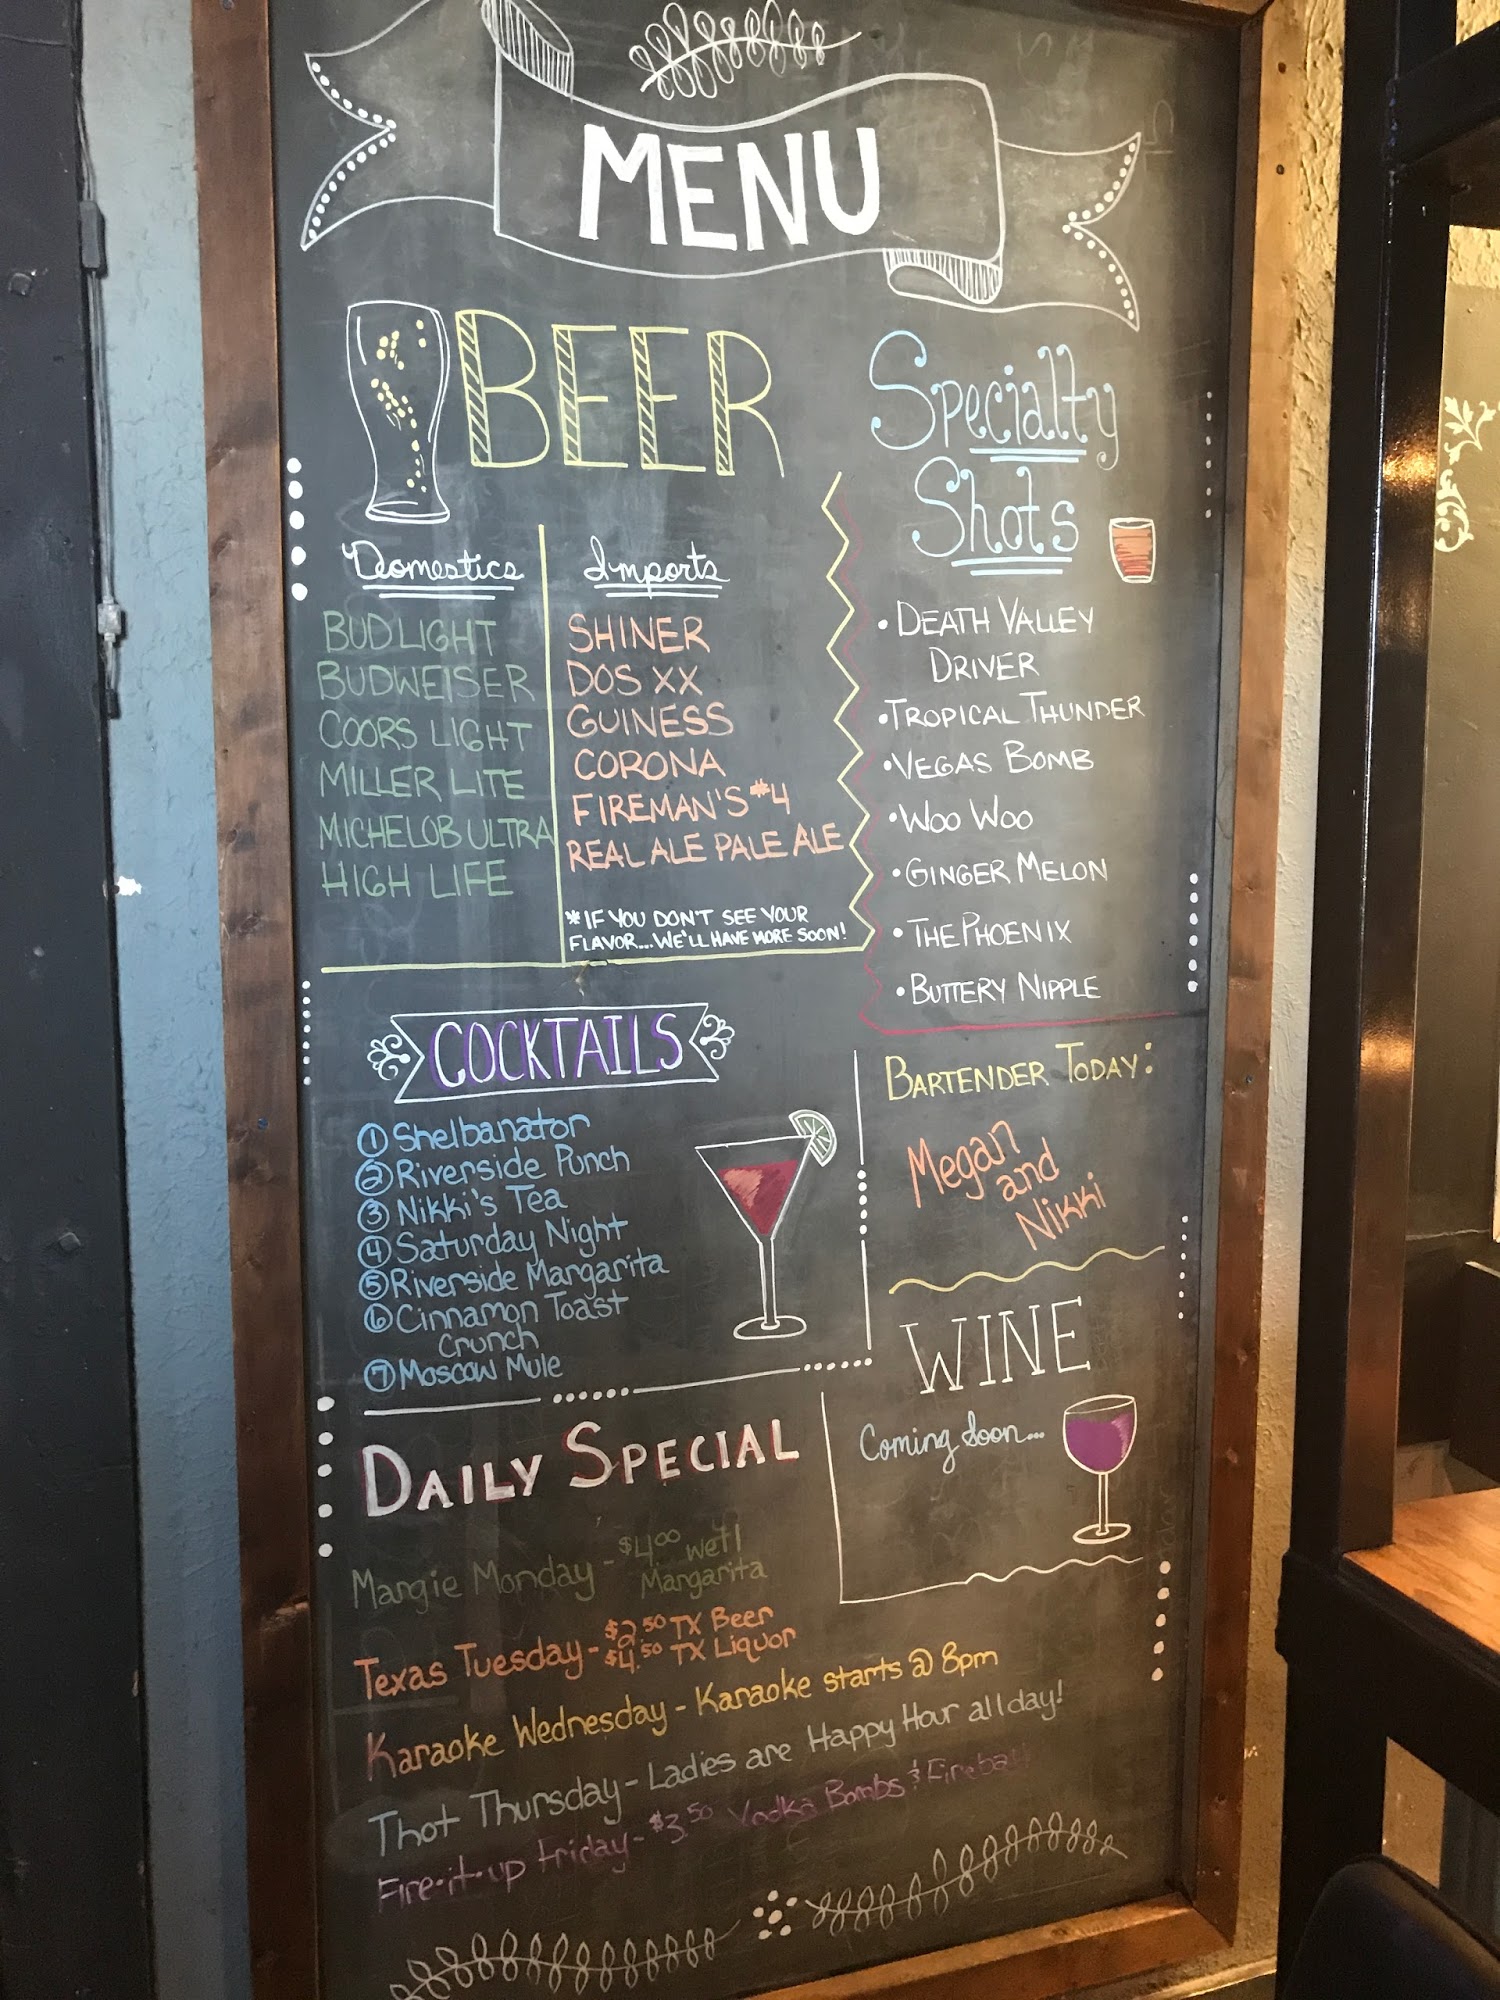 MENU
BEER
Domestics
BUD LIGHT
BUDWEISER
COORS LIGHT
MILLER LITE
MICHELOB ULTRA
HIGH LIFE
Imports
SHINER
DOS XX
GUINESS
CORONA
FIREMAN'S #4
REAL ALE PALE ALE
* IF YOU DON'T SEE YOUR
FLAVOR... WE'LL HAVE MORE SOON!
Specialty
Shots
• DEATH VALLEY
DRIVER
• TROPICAL THUNDER
• VEGAS BOMB
• WOO WOO
• GINGER MELON
• THE PHOENIX
• BUTTERY NIPPLE
COCKTAILS
① Shelbanator
② Riverside Punch
③ Nikki's Tea
④ Saturday Night
⑤ Riverside Margarita
⑥ Cinnamon Toast
Crunch
⑦ Moscow Mule
BARTENDER TODAY:
Megan
and
Nikki
WINE
Coming Soon...
DAILY SPECIAL
Margie Monday - $4.00 well
Margarita
Texas Tuesday - $2.50 TX Beer
$4.50 TX Liquor
Karaoke Wednesday - Karaoke starts @ 8pm
Thot Thursday - Ladies are Happy Hour all day!
Fire-it-up Friday - $3.50 Vodka Bombs & Fireball